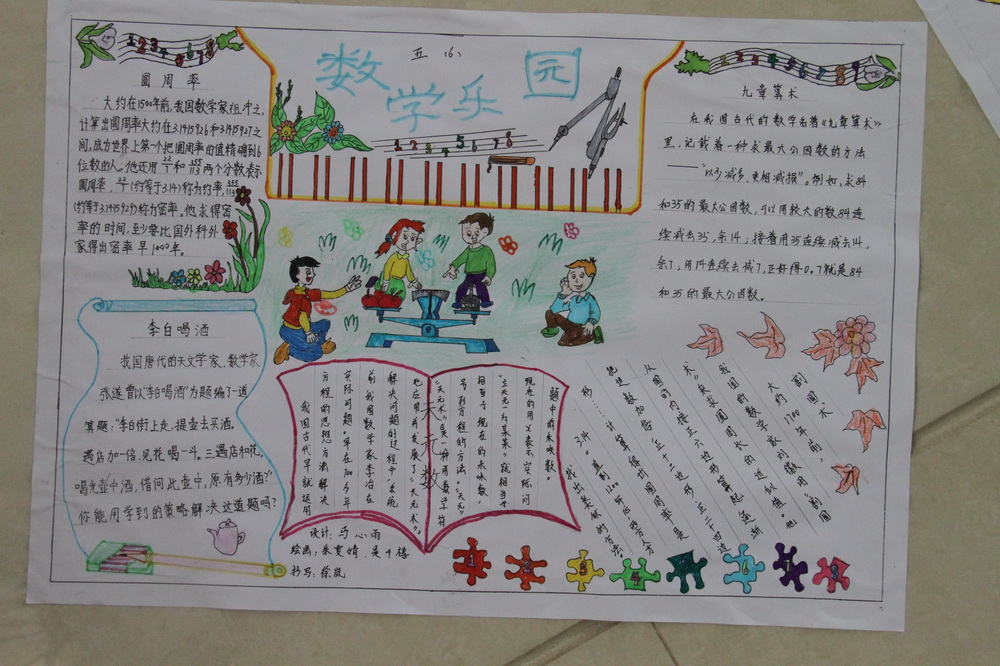 五（6）
数学乐园
圆周率
大约在1500年前，我国数学家祖冲之，
计算出圆周率大约在3.1415926和3.1415927之
间，成为世界上第一个把圆周率的值精确到6
位数的人。他还用22/7和355/113两个分数表示
圆周率，22/7(约等于3.14)称为约率，355/113
(约等于3.1415929)称为密率。他求得密
率的时间，至少要比国外科外
家得出密率早1000年。
李白喝酒
我国唐代的天文学家、数学家
张遂曾以"李白喝酒"为题编了一道
算题："李白街上走，提壶去买酒。
遇店加一倍，见花喝一斗。三遇店和花，
喝光壶中酒。借问此壶中，原有多少酒？"
你能用学到的策略解决这道题吗？
九章算术
在我国古代的数学名著《九章算术》
里，记载着一种求最大公因数的方法
——"以少减多，更相减损"。例如，求84
和35的最大公因数，可以用较大的数84连
续减去35，余14；接着用35连续减去14，
余7；用14连续去减7，正好得0。7就是84
和35的最大公因数。
天元数
我国古代早就运用
方程的思想方法解决
实际问题。早在700多年
前，我国数学家李冶在
解决问题的过程中，系统
地应用并发展了"天元术"。
"天元术"是一种用数学符
号列方程的方法。"天元"
相当于现在的未知数，
"立天元一为某某"，就相当于
现在的用x表示实际问
题中的未知数。
割圆术
大约1700年前，
我国的数学家刘徽用"割圆
术"来求圆周长的近似值。他
从圆的内接正六边形算起，逐渐
把边数加倍，正十二边形、正二十四边
形……计算得到圆周率是
3.14。
找出类似的方法
设计：马心雨
绘画：朱
抄写：徐岚
1 2 3 4 5 6 7 8